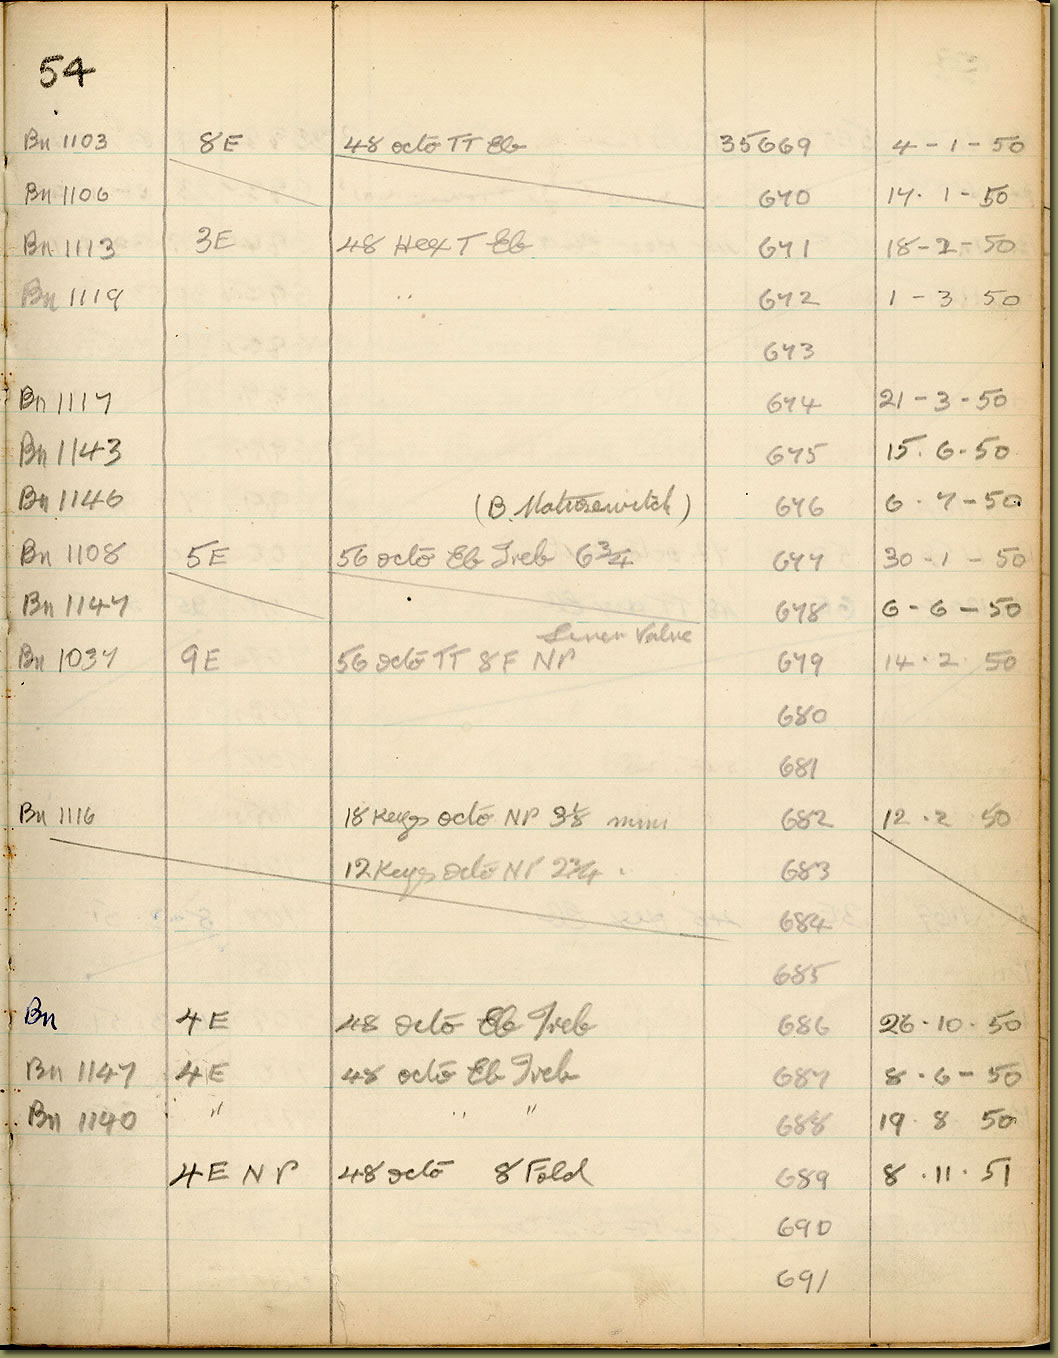 54
Bn 1103 8E 48 octo TT Eb 35669 4-1-50
Bn 1106 670 17. 1-50
Bn 1113 3E 48 Hex T Eb 671 18-2-50
Bn 1119 " 672 1-3 50
673
Bn 1117 674 21-3-50
Bn 1143 675 15. 6-50
Bn 1146 (B. Matusewitch) 676 6.7-50
Bn 1108 5E 56 octo Eb Treb 6 3/4 677 30-1-50
Bn 1147 678 6-6-50
Value
Bn 1037 9E 56 octo TT 8F NP 679 14.2.50
680
681
Bn 1116 18 Keys octo NP 3 1/8 mini 682 12.2 50
12 Keys octo NP 2 3/4 . 683
684
685
Bn 4E 48 octo Eb Treb 686 26.10.50
Bn 1147 4E 48 octo Eb Treb 687 8.6-50
Bn 1140 " " " 688 19.8 50
4E NP 48 octo 8 Fold 689 8.11.51
690
691